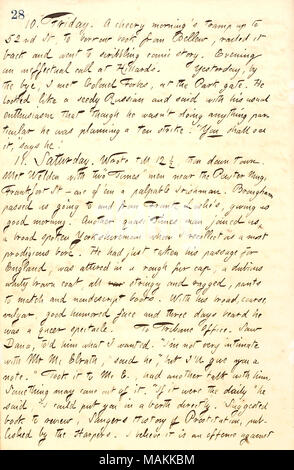 28
10. Friday. A cheery morning's tramp up to
52nd St. to borrow book from Bellew, raced it
back and went to scribbling comic story. Evening
an ineffectual call at Hillards. Yesterday, by
the bye, I met Colonel Forbes, at the Park gate. He
looked like a seedy Russian and said with his usual
enthusiasm that though he wasn't doing anything par-
ticular he was planning a ten strike! "You shall see
it," says he!
11. Saturday. Wrote till 12 ½ then down town.
Met Welden with two Times' men near the Pastor Mag,
Frankfort St — one of em a palpable Irishman. Brougham
passed us going to and from Frank Leslie's, giving us
good morning. Another quasi Times man joined us,
a broad spoken Yorkshireman whom I recollect as a most
prodigious bore. He had just taken his passage for
England, was attired in a rough fur cap, a dubious
whity brown coat all stringy and ragged, pants
to match and nondescript boots. With his broad, coarse
vulgar, good humored face and three days beard he
was a queer spectacle. To Tribune Office. Saw
Dana, told him what I wanted. "I'm not very intimate
with Mr Mc Elrath," said he, "but I'll give you a
note. Took it to Mc E., had another talk with him.
Something may come out of it. "If it were the daily" he
said "I could put you in a berth directly. Suggested
book to review, Sanger's History of Prostitution, pub-
lished by the Harpers. I believe it is an offence against
alamy
Image ID: MAKKBM
www.alamy.com